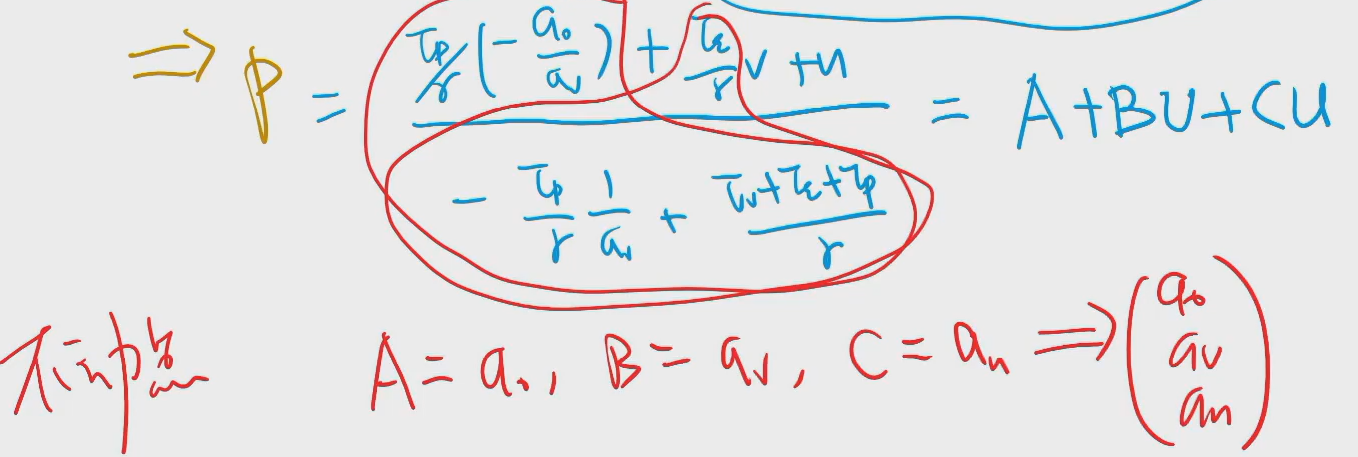 ⇒ P = (τ_p/γ (−a₀/a_v) + τ_ε/γ v + u) / (− τ_p/γ 1/a_v + (τ_v+τ_ε+τ_p)/γ) = A+BU+CU
不动点 A = a₀, B = a_v, C = a_n ⇒ (a₀ a_v a_n)